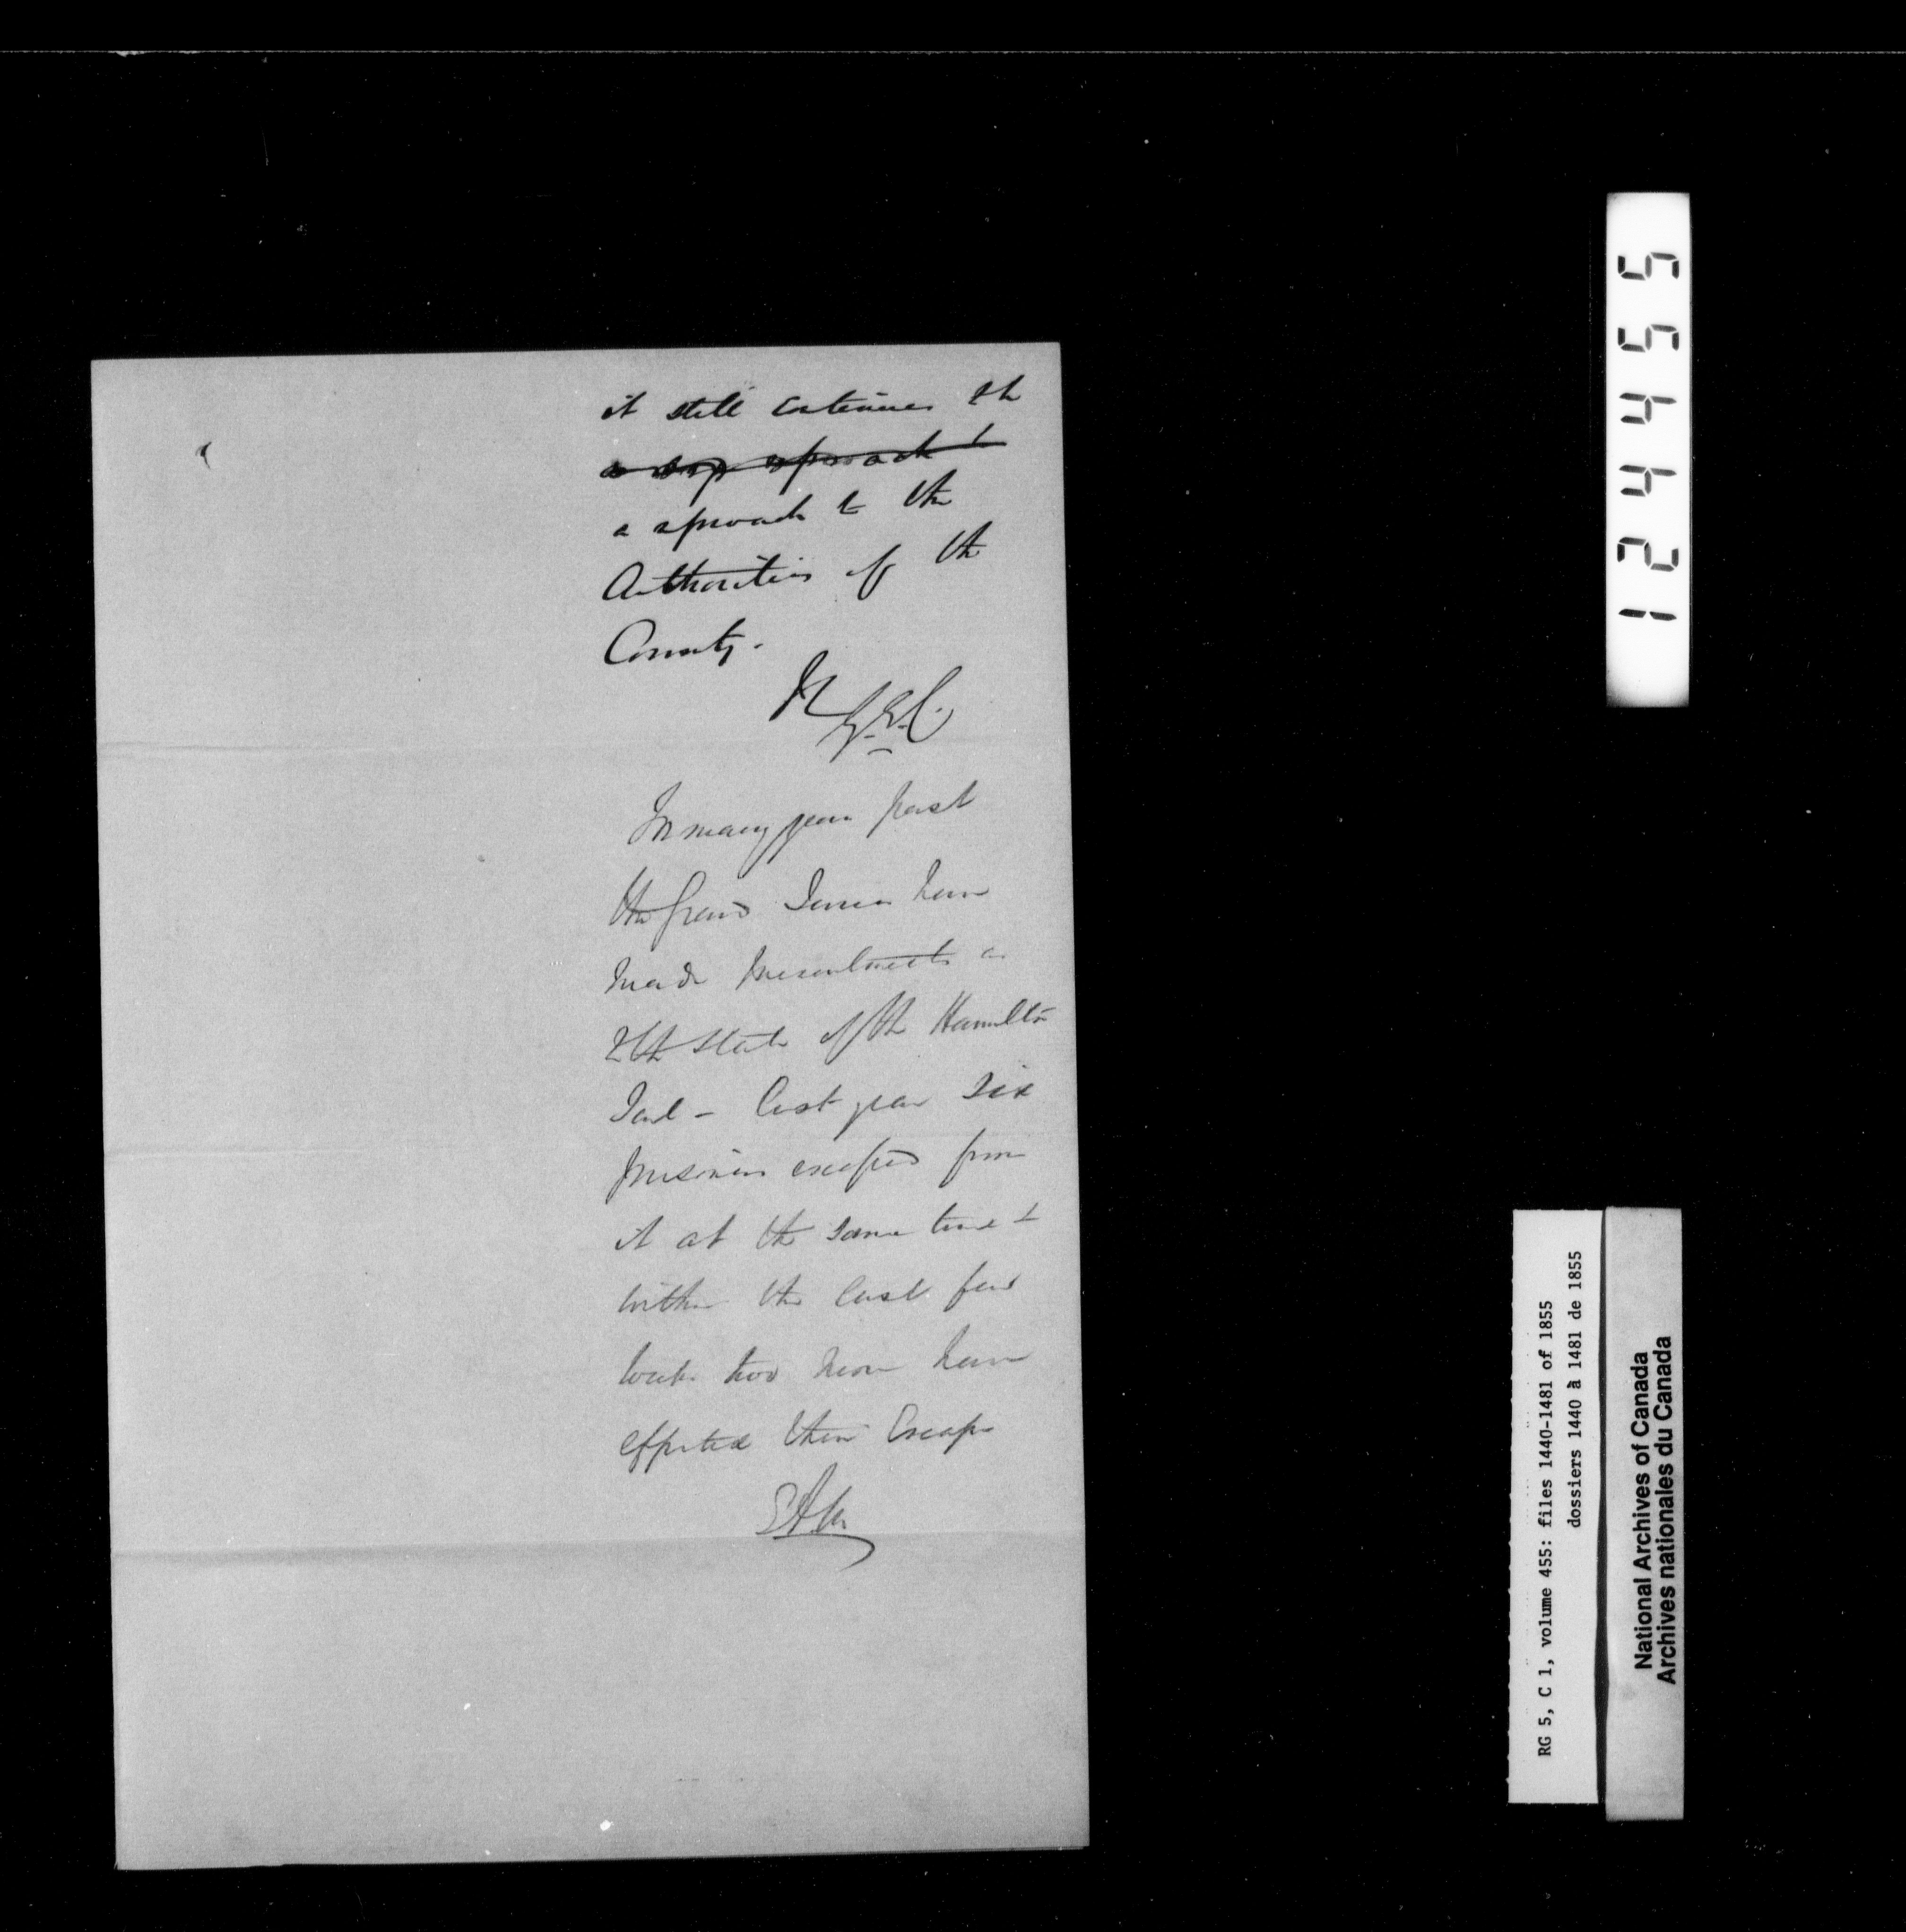 it still continues to be
a reproach to
a reproach to the
Authorities of the
County.
For many years past
the Grand Juries have
made presentments as
to the state of the Hamilton
Jail - last year six
prisoners escaped from
it at the same time &
within the last few
weeks two more have
effected their escape
124455
RG 5, C 1, volume 455: files 1440-1481 of 1855
dossiers 1440 à 1481 de 1855
National Archives of Canada
Archives nationales du Canada